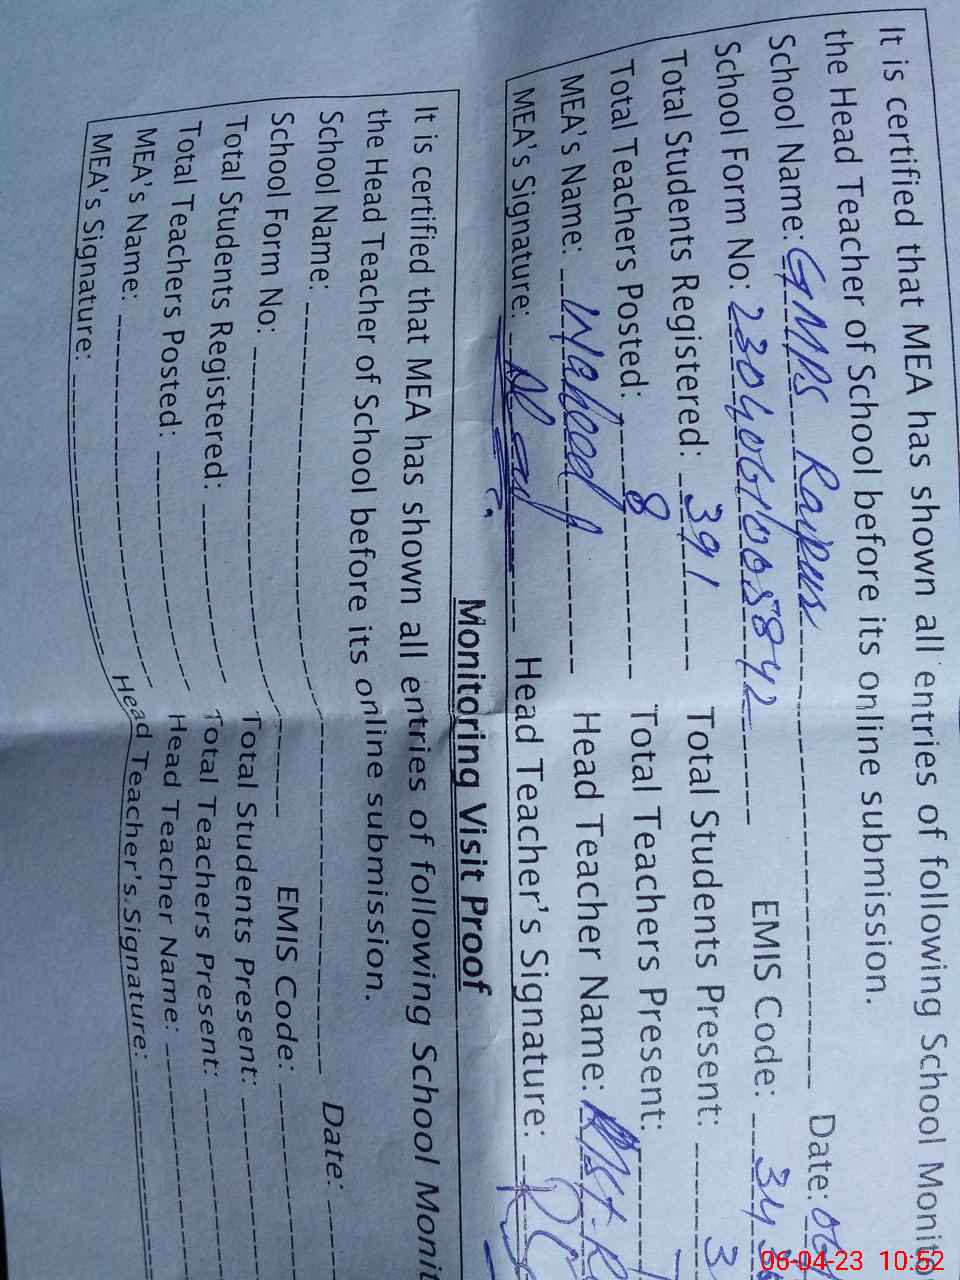 It is certified that MEA has shown all entries of following School Monito
the Head Teacher of School before its online submission.
School Name: GMPS Raipur Date: 06
School Form No: 2304061005842 EMIS Code: 34
Total Students Registered: 391 Total Students Present: 3
Total Teachers Posted: 8 Total Teachers Present:
MEA's Name: Waheed Head Teacher Name:
MEA's Signature: Head Teacher's Signature:
Monitoring Visit Proof
It is certified that MEA has shown all entries of following School Monit
the Head Teacher of School before its online submission.
School Name: Date:
School Form No: EMIS Code:
Total Students Registered: Total Students Present:
Total Teachers Posted: Total Teachers Present:
MEA's Name: Head Teacher Name:
MEA's Signature: Head Teacher's Signature:
06-04-23 10:52